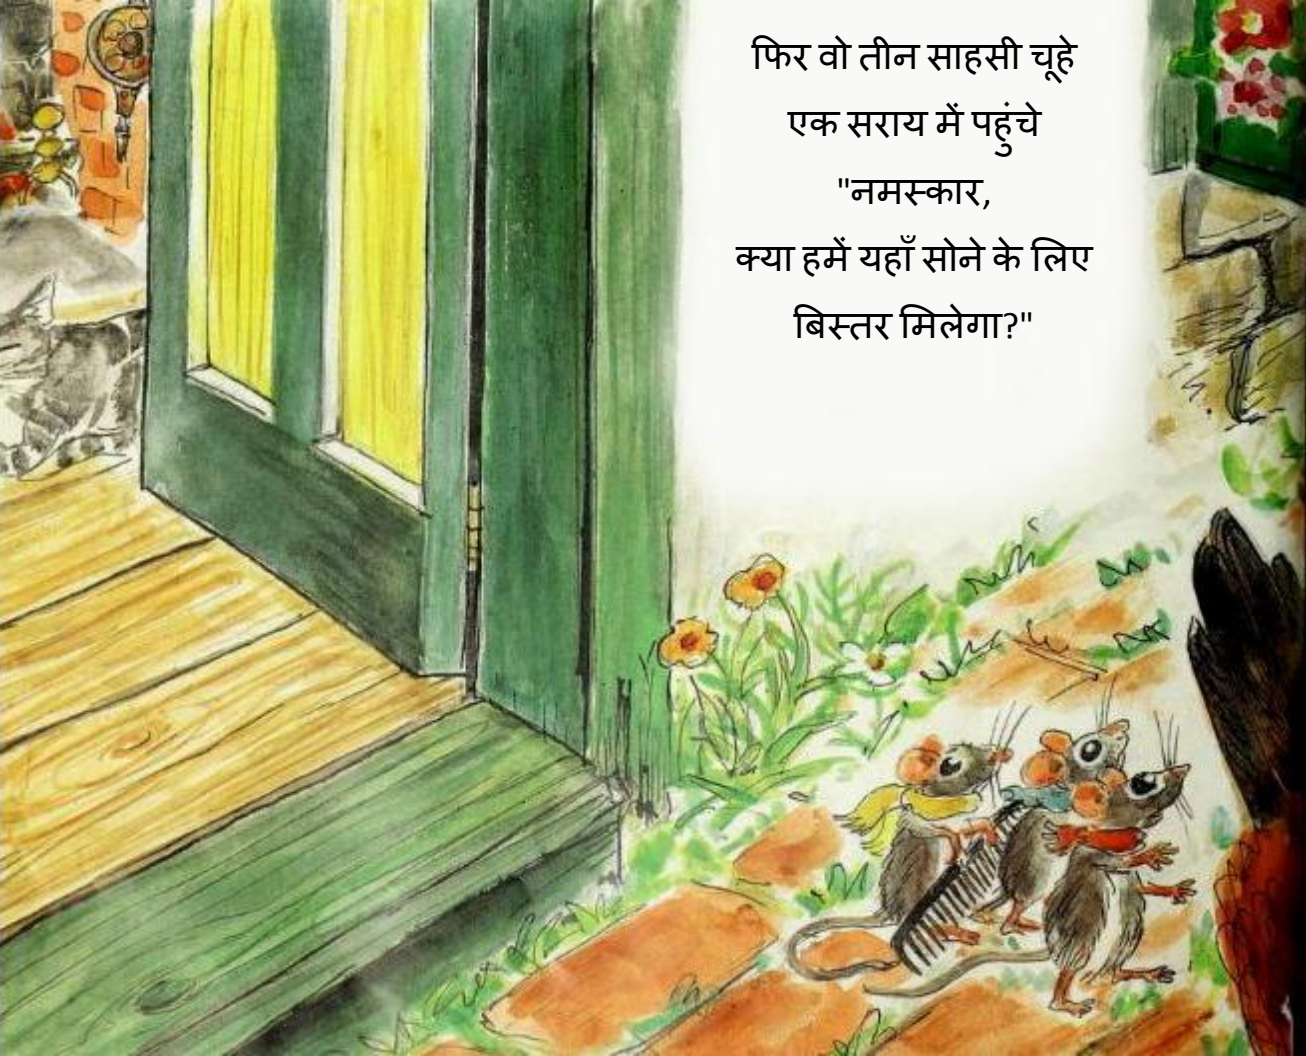 फिर वो तीन साहसी चूहे
एक सराय में पहुंचे
"नमस्कार,
क्या हमें यहाँ सोने के लिए
बिस्तर मिलेगा?"